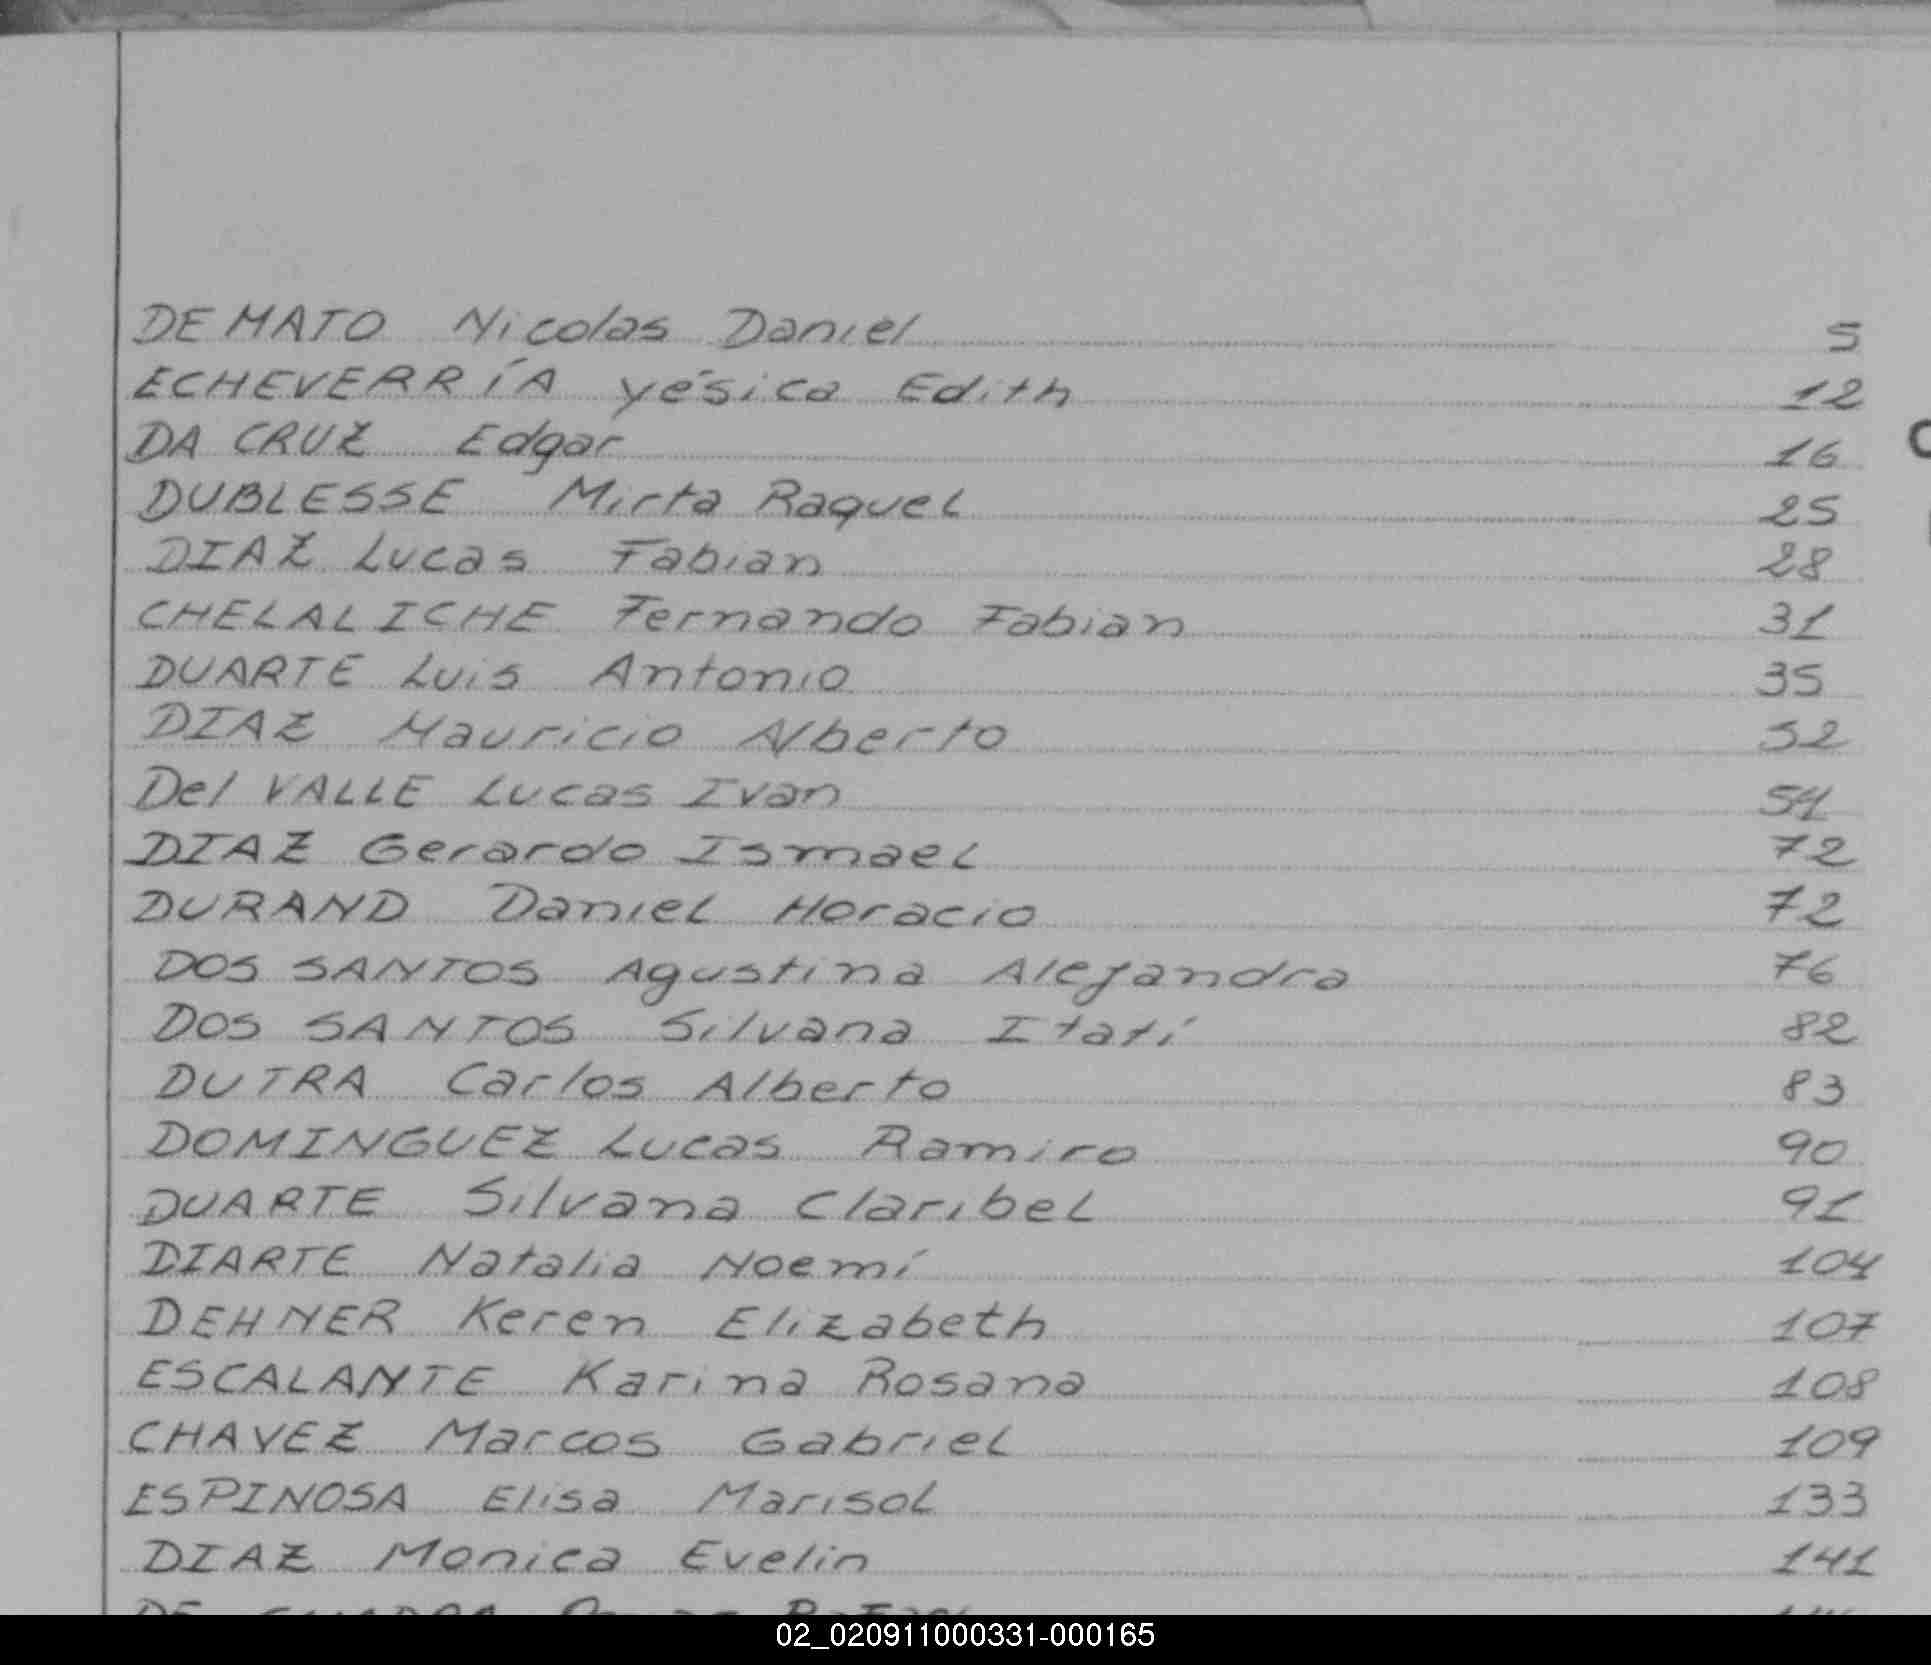 DE MATO Nicolas Daniel 5
ECHEVERRÍA yésica Edith 12
DA CRUZ Edgar 16
DUBLESSE Mirta Raquel 25
DIAZ Lucas Fabian 28
CHELALICHE Fernando Fabian 31
DUARTE Luis Antonio 35
DIAZ Mauricio Alberto 52
Del VALLE Lucas Ivan
DIAZ Gerardo Ismael 72
DURAND Daniel Horacio 72
DOS SANTOS Agustina Alejandra 76
DOS SANTOS Silvana Itatí 82
DUTRA Carlos Alberto 83
DOMINGUEZ Lucas Ramiro 90
DUARTE Silvana Claribel 91
DIARTE Natalia Noemí 104
DEHNER Keren Elizabeth 107
ESCALANTE Karina Rosana 108
CHAVEZ Marcos Gabriel 109
ESPINOSA Elisa Marisol 133
DIAZ Monica Evelin 141
02_020911000331-000165